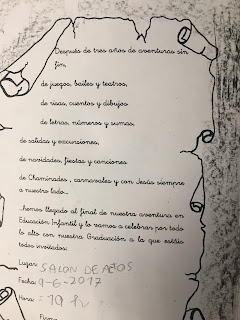 Después de tres años de aventuras sin
fin,
de juegos, bailes y teatros,
de risas, cuentos y dibujos
de letras, números y sumas,
de salidas y excursiones,
de novidades, fiestas y canciones
de Chaminades, carnavales y con Jesús siempre
a nuestro lado...
...hemos llegado al final de nuestra aventura en
Educación Infantil y lo vamos a celebrar por todo
lo alto con nuestra Graduación a la que estáis
todos invitados:
Lugar: SALON DE ACTOS
Fecha: 9-6-2017
Hora: 19 h